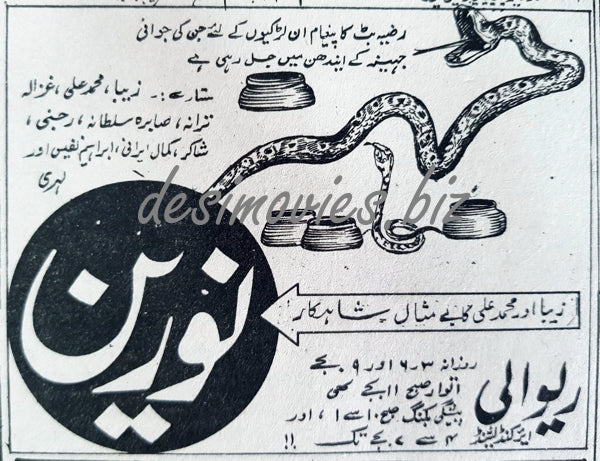 رضیہ بٹ کا پیغام ان لڑکیوں کے لئے جن کی جوانی
جہیز کے ایندھن میں جل رہی ہے
ستارے:۔ زیبا، محمد علی، غزالہ
ترانہ، صابرہ سلطانہ، رجنی،
شاکر، کمال ایرانی، ابراہیم نفیس اور
لہری
desimovies.biz
نورین
زیبا اور محمد علی کا بے مثال شاہکار
ریوالی
ایئرکنڈیشنڈ
روزانہ ۳۔۶ اور ۹ بجے
اتوار صبح ۱۱ بجے بھی
پیشگی بکنگ صبح ۱۰ سے ۱، اور
۴ سے ۷ بجے تک !!